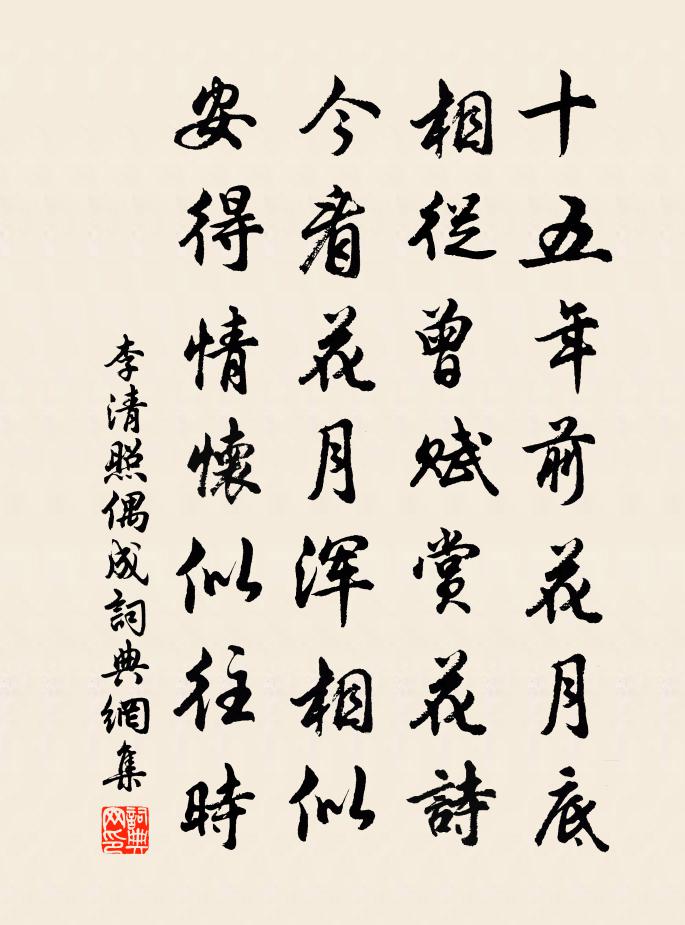 十五年前花月底
相從曾賦賞花詩
今看花月渾相似
安得情懷似往時
李清照偶成詞典網集
詞典网印